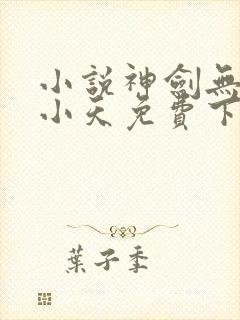 小說神劍無
小天免費下
葉子季